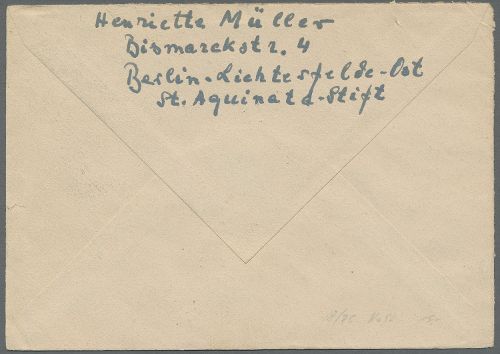 Henriette Müller
Bismarckstr. 4
Berlin-Lichterfelde-Ost
St. Aquinata-Stift